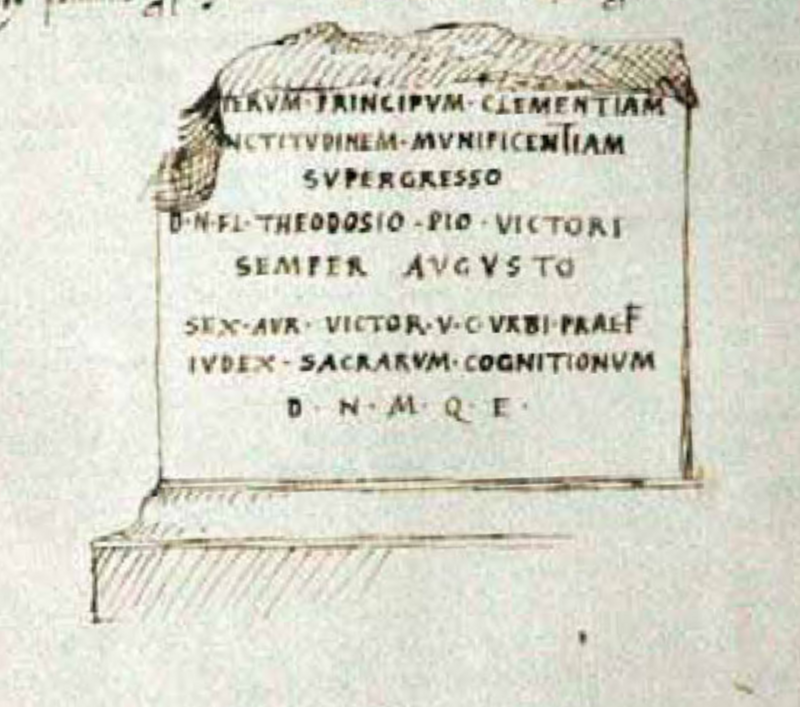 TERVM·PRINCIPVM·CLEMENTIAM
NCTITVDINEM·MVNIFICENTIAM
SVPERGRESSO
D·N·FL·THEODOSIO·PIO·VICTORI
SEMPER AVGVSTO
SEX·AVR·VICTOR·V·C·VRBI·PRAEF
IVDEX·SACRARVM·COGNITIONVM
D·N·M·Q·E·